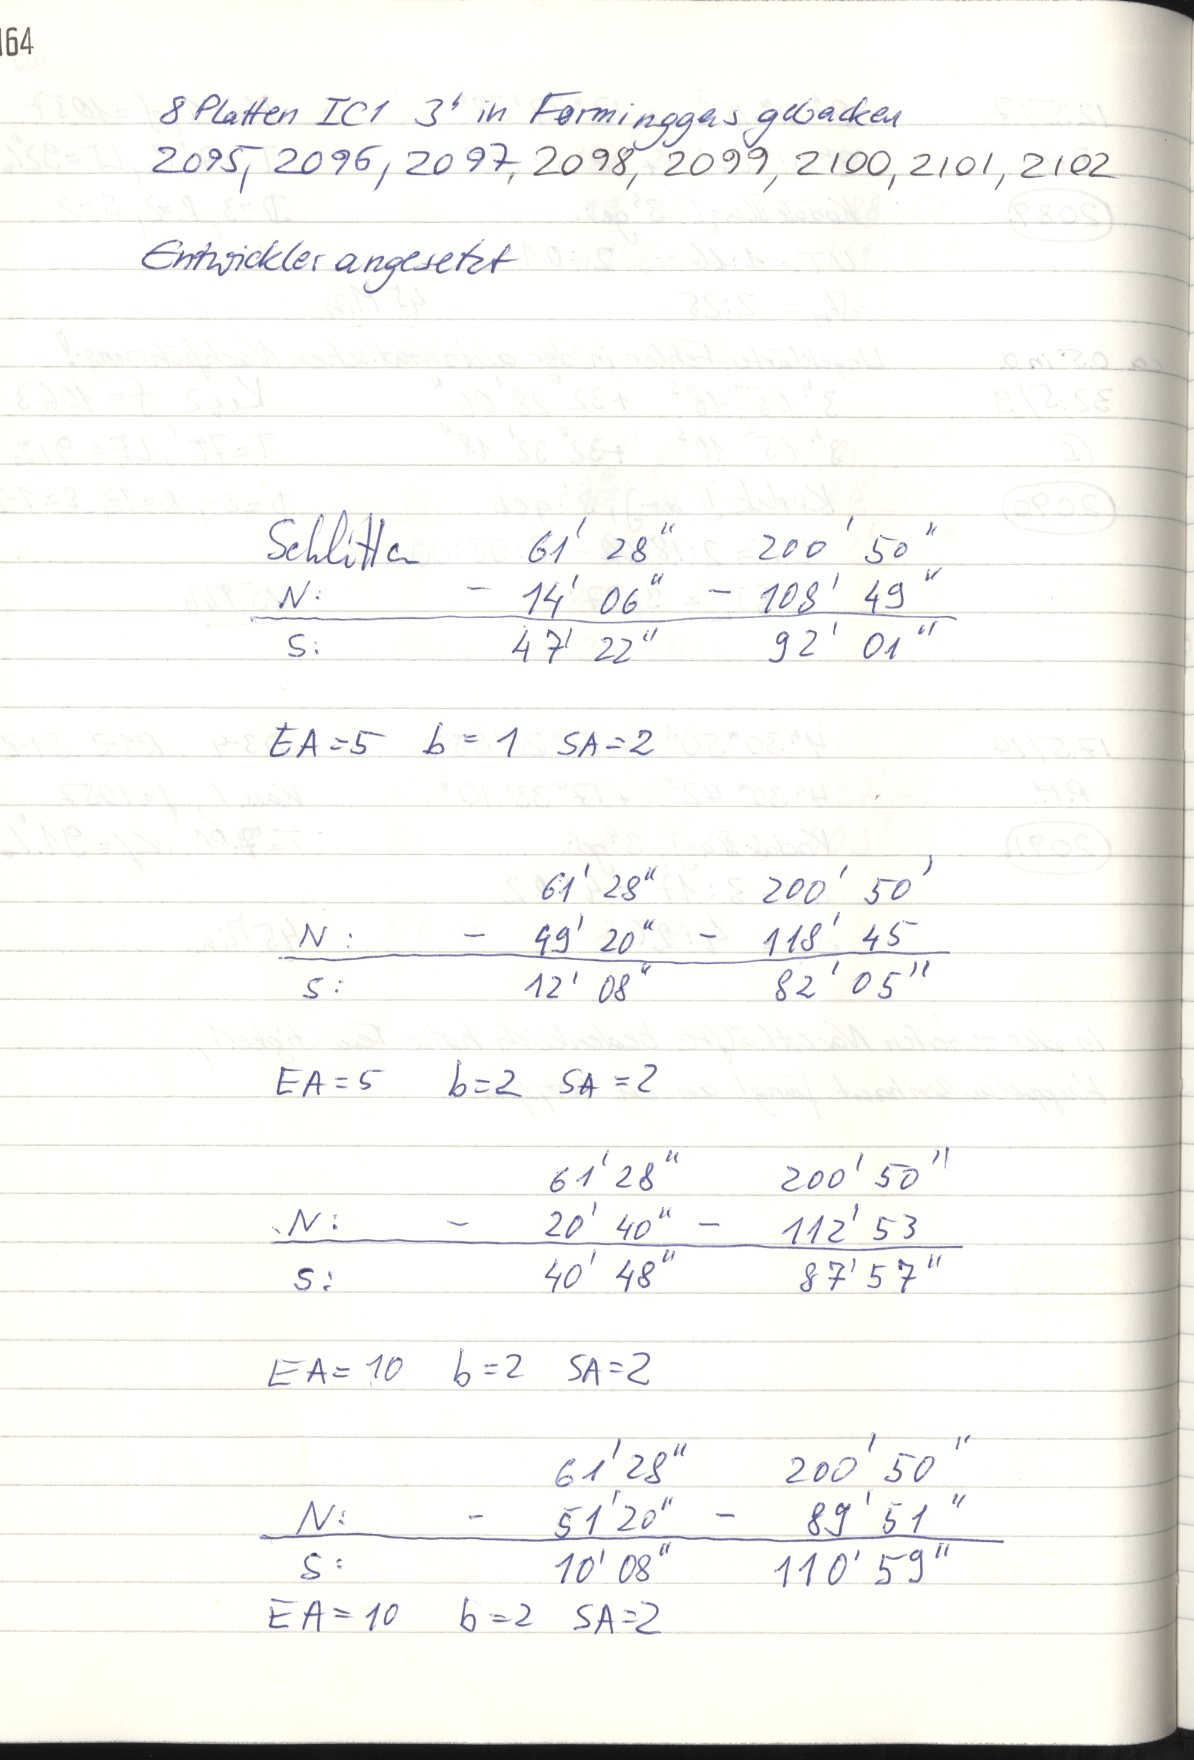 164
8 Platten IC1 3ʰ in Forminggas gebacken
2095, 2096, 2097, 2098, 2099, 2100, 2101, 2102
Entwickler angesetzt
Schlitten 61' 28" 200' 50"
N: - 14' 06" - 108' 49"
S: 47' 22" 92' 01"
EA=5 b=1 SA=2
61' 28" 200' 50'
N: - 49' 20" - 118' 45
S: 12' 08" 82' 05"
EA=5 b=2 SA=2
61' 28" 200' 50"
N: - 20' 40" - 112' 53
S: 40' 48" 87' 57"
EA=10 b=2 SA=2
61' 28" 200' 50"
N: - 51' 20" - 89' 51"
S: 10' 08" 110' 59"
EA=10 b=2 SA=2